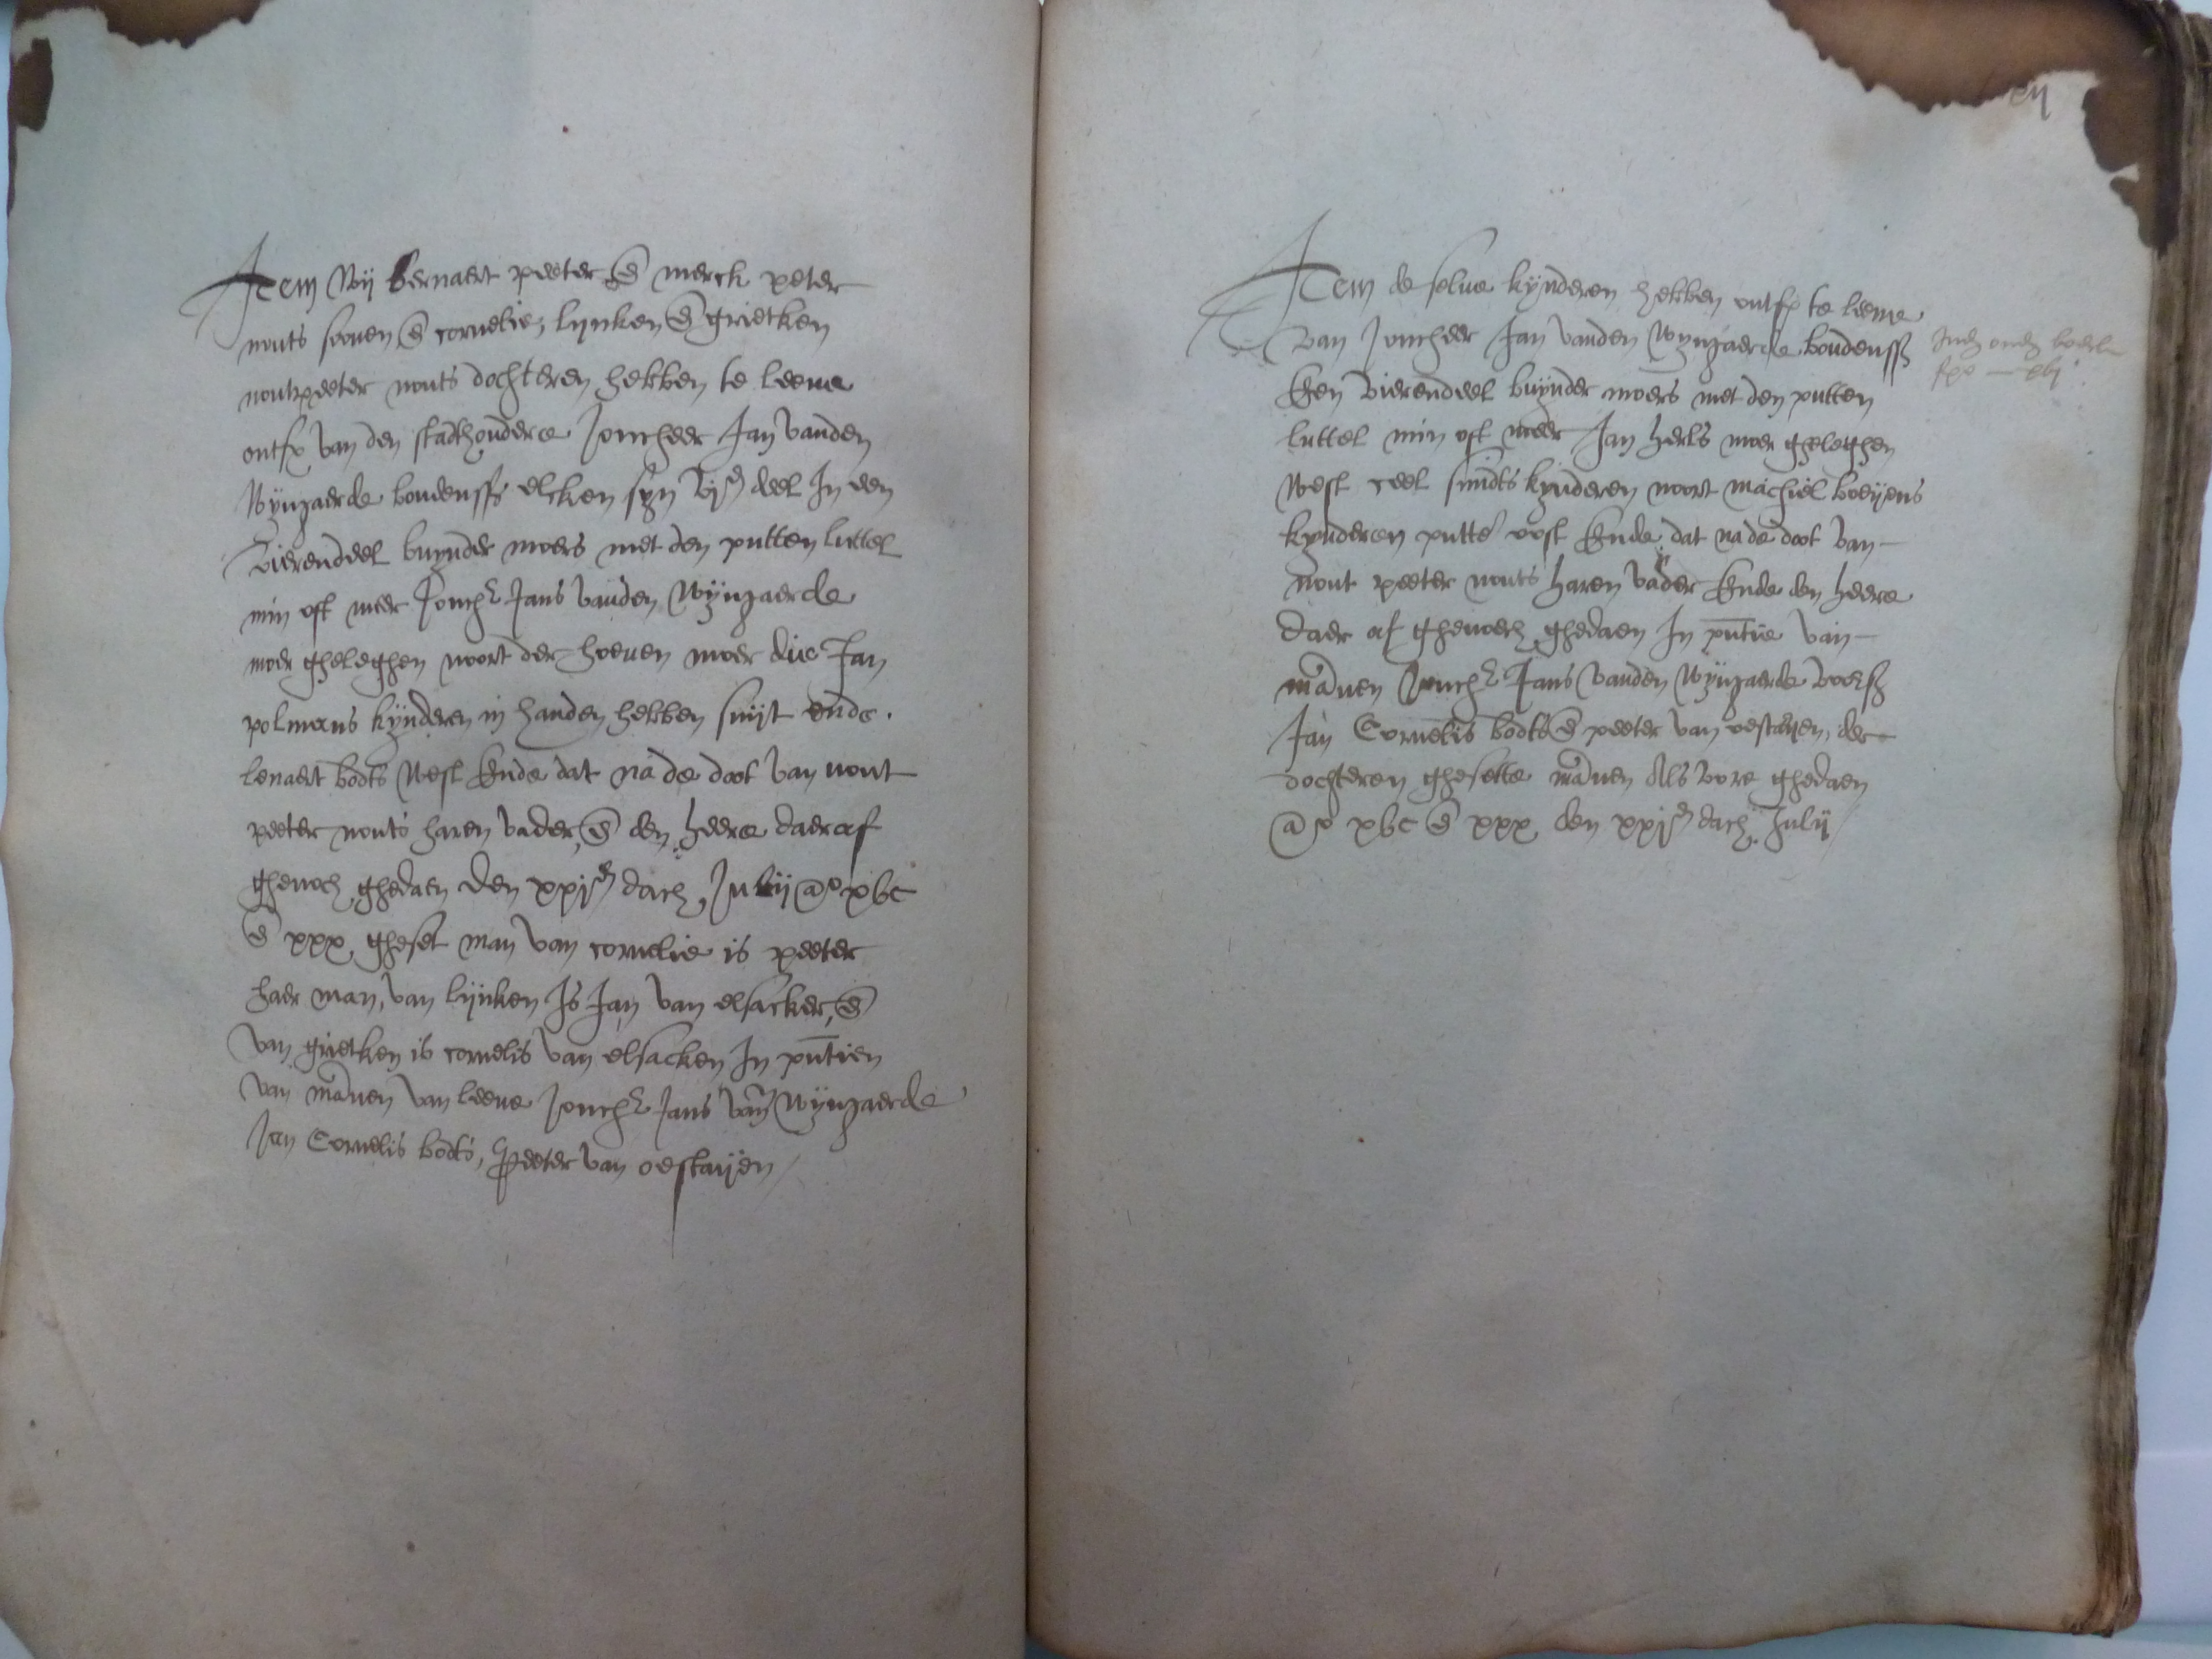 Item Wij bernaert peeter en̄ merck peter
nouts sonen en̄ cornelie, lijnken en̄ grietken
nout peeter nouts dochteren hebben te leene
ontf van den stadthoudere Joncheer Jan vanden
Wijngaerde boudenss elcken syn vjde deel In een
vierendeel buijnder moers met den putten luttel
min oft meer Jonchr Jans vanden Wijngaerde
moer gheleghen noort der hoeuen moer die Jan
polmans kijnderen in handen hebben suijt ende
lenaert bodts West Ende dat na de doot van nout
peeter nouts haren vader, en̄ den heere daer af
ghenoch ghedaen den xxjen dach Julij ao xvc
en̄ xxx, gheset man van cornelie is peeter
haer man, van lijnken Is Jan van elsacker, en̄
van grietken is cornelis van elsacken In pntien
van mānen van leene Jonchr Jans vāden Wijngaerde
Jan Cornelis bodts, Peeter van oestaijen /
xij
Item de selue kijnderen hebben ontf te leene
van Joncheer Jan vanden Wijngaerde boudenss
Een vierendeel buijnder moers met den putten
luttel min oft meer Jan herls moer gheleghen
West ceel smidts kijnderen noort machiel boeijens
kijnderen putte oost Ende dat na de doot van
nout peeter nouts haren vader Ende den heere
daer af ghenoech ghedaen In pntie van
mānen Jonchr Jans vanden Wijngaerde voers
Jan Cornelis bodts en̄ peeter van oestaijen, der
dochteren ghesette mānen Als vore ghedaen
ao xvc en̄ xxx den xxjen dach Julij /
Inden ouden boeck
fo — xvj